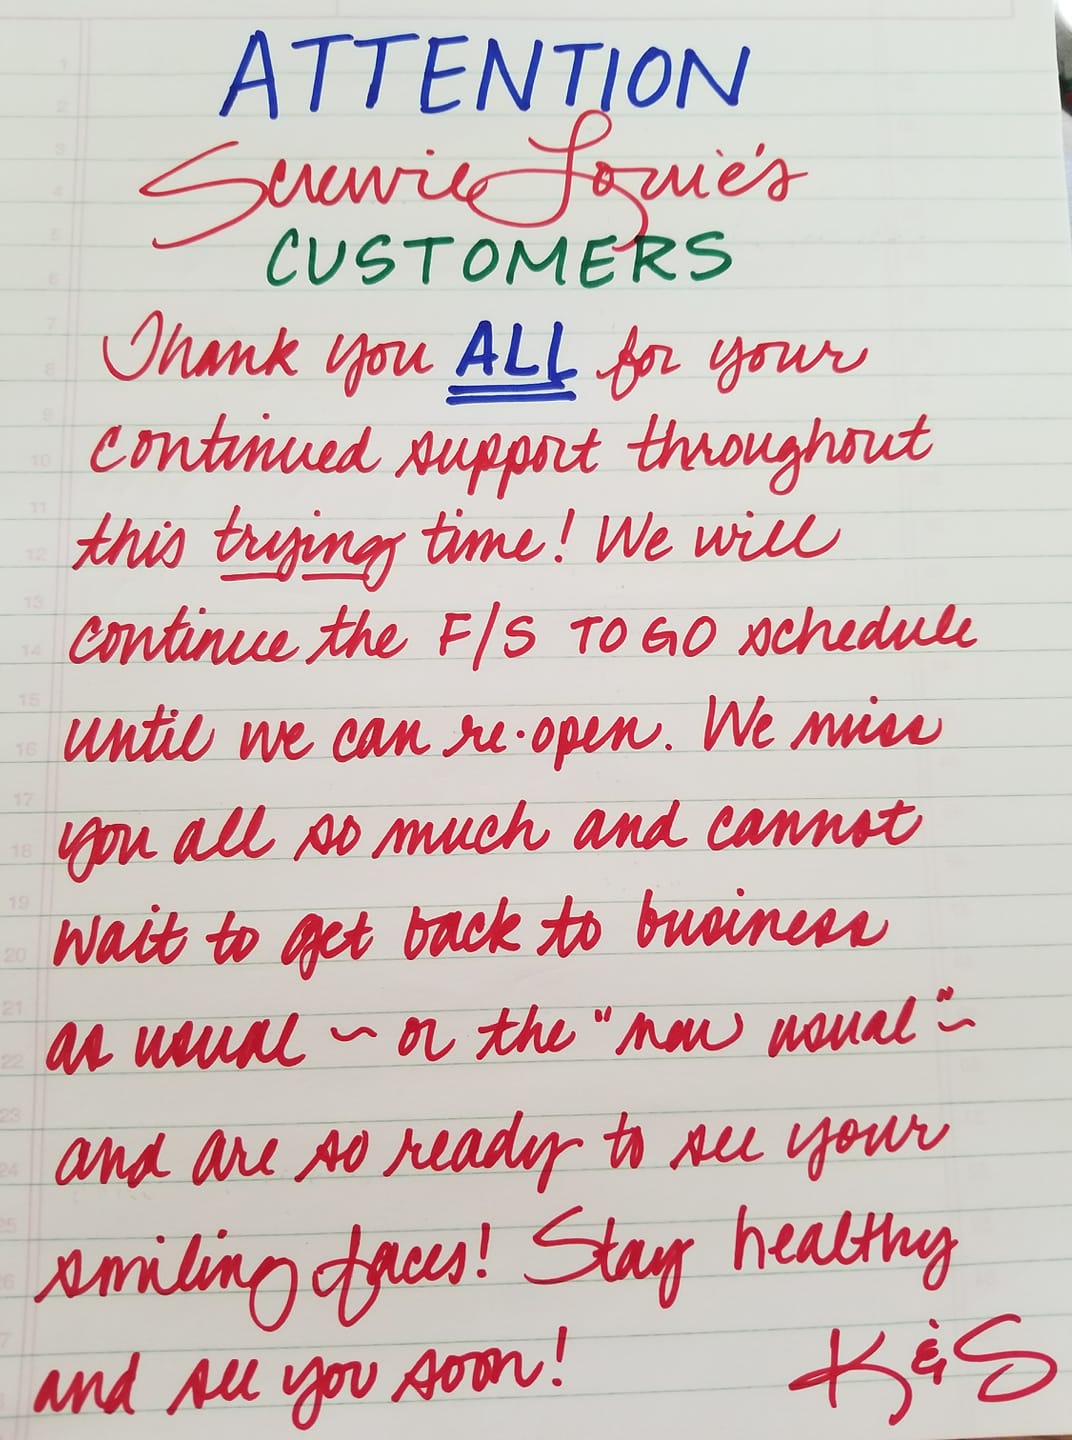 ATTENTION
Screwie Louie's
CUSTOMERS
Thank you ALL for your
continued support throughout
this trying time! We will
continue the F/S TO GO schedule
until we can re-open. We miss
you all so much and cannot
wait to get back to business
as usual ~ or the "new usual" ~
and are so ready to see your
smiling faces! Stay healthy
and see you soon!
K & S